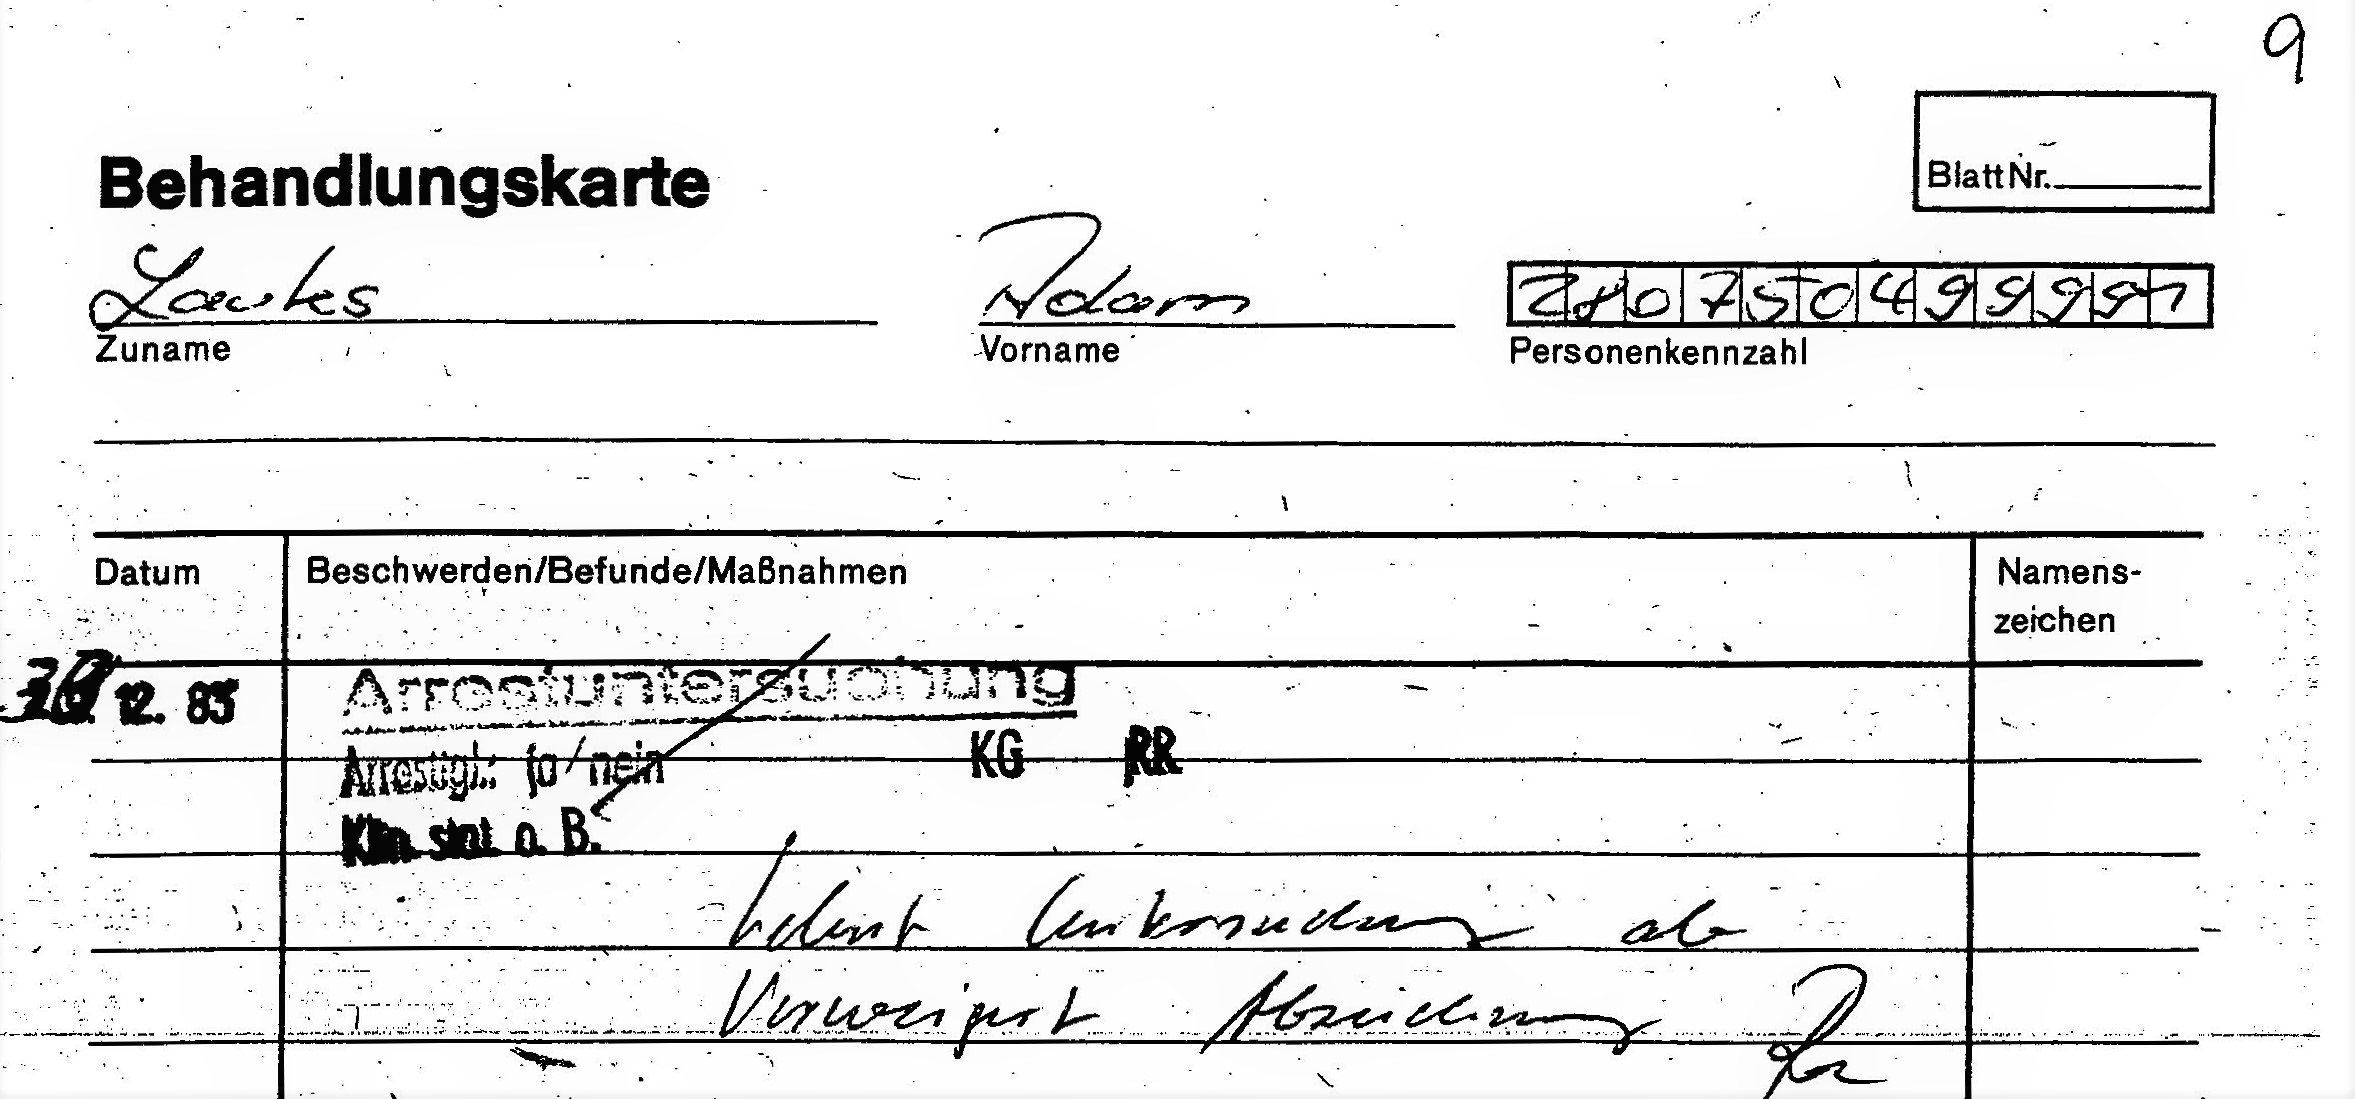 9
Behandlungskarte
Blatt Nr.
Lautes Adam
Zuname Vorname Personenkennzahl
Datum Beschwerden/Befunde/Maßnahmen Namens-
zeichen
12. 83 Arrestuntersuchung
Arresttgl.: ja/nein KG RR
Klin. stat. o. B.
lehnt Untersuchung ab
Verweigert Abzeichnung